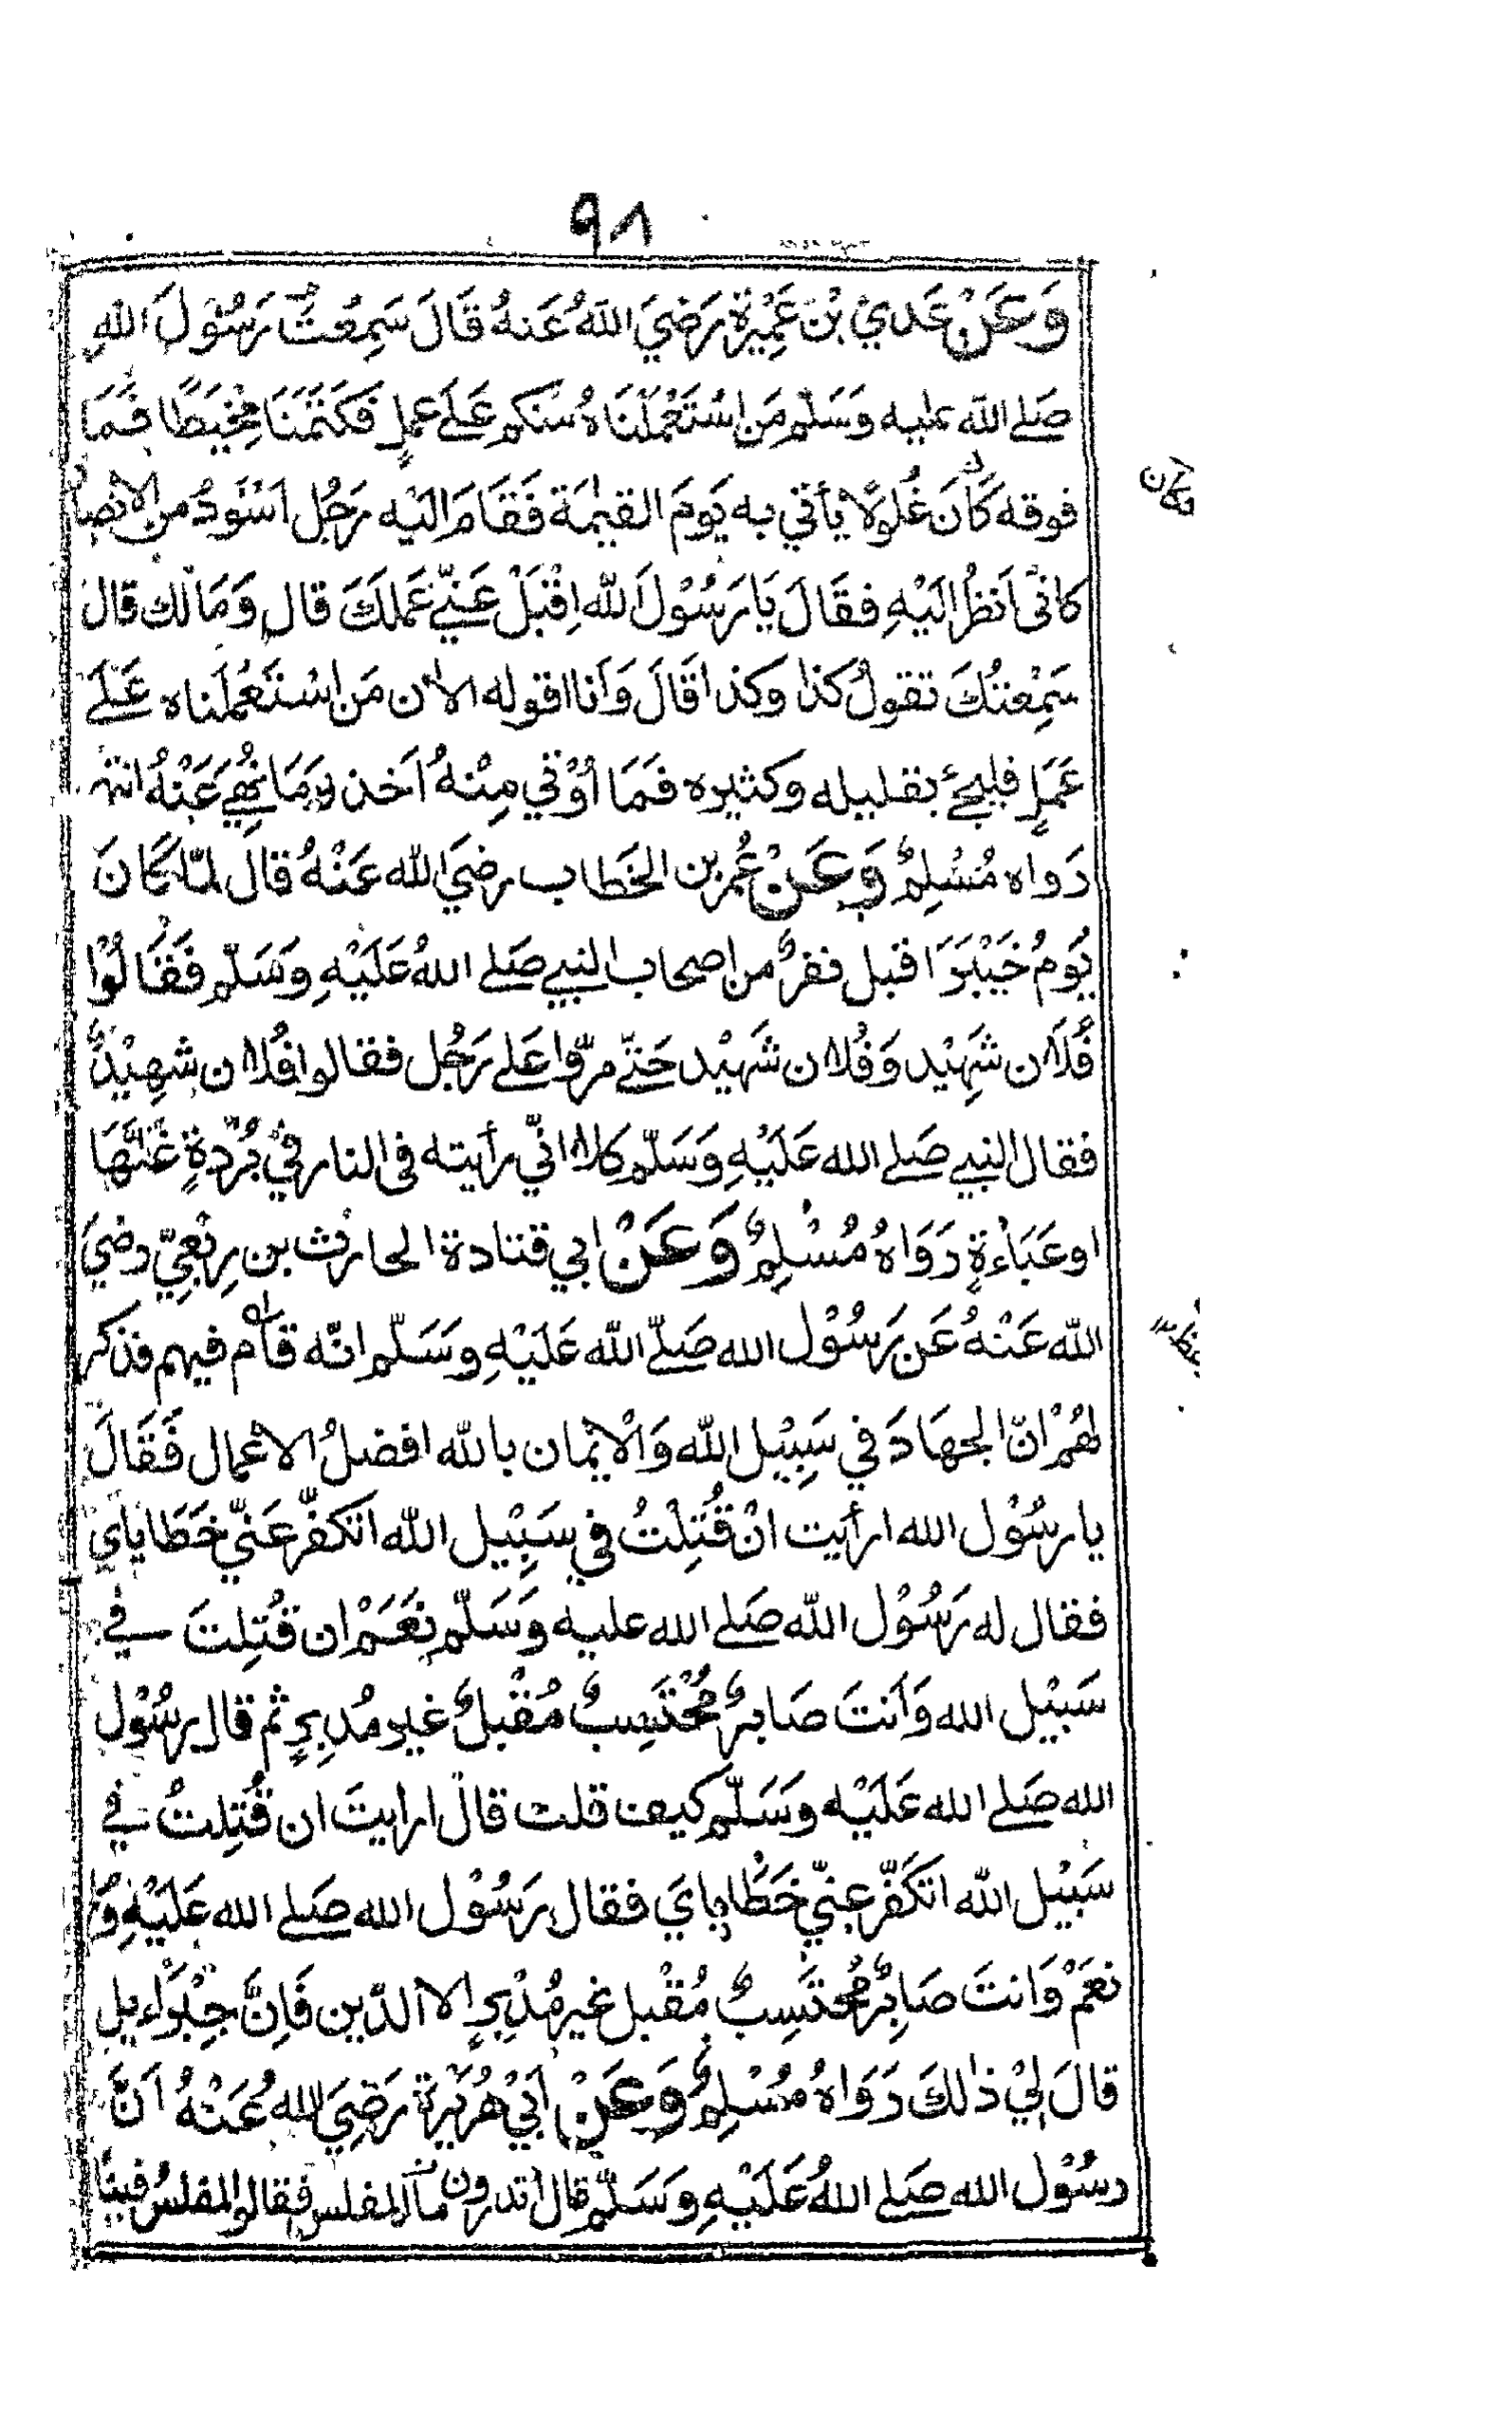 ٩٨
وَعَنْ عَدِيِّ بْنِ عَمِيْرَةَ رَضِيَ اللهُ عَنهُ قَالَ سَمِعْتُ رَسُوْلَ اللهِ
صَلے الله عليه وَسَلّم مَن اسْتَعْمَلْنَاهُ مِنكم عَلَے عملٍ فَكَتَمَنَا مِخْيَطًا فَمَا
فوقه كَانَ غُلُولًا يأتي به يَومَ القيٰمَة فَقَامَ اليْه رَجُل اَسْوَدُ من الانصار
كانّى اَنظُرُ اليْهِ فقَالَ يَا رَسُوْلَ الله اِقْبَلْ عَنِّے عَمَلَكَ قال وَمَالك قال
سَمِعْتُكَ تقولُ كذا وكذا قَالَ وَاَنا اقوله الاٰن مَن اسْتَعْمَلناه عَلَے
عَمَلٍ فليجئ بقليله وكثيره فَمَا اُوْتي مِنْهُ اَخذ وَمَا نُهِيَ عَنْهُ انتهٰى
رَواه مُسْلِمٌ وَعَنْ عُمر بن الخَطاب رضيَ الله عَنْهُ قالَ لمّا كَانَ
يَومُ خَيْبَرَ اقبل نفرٌ من اصحاب النبي صَلے اللهُ عَلَيْهِ وَسَلّم فَقَالُوْا
فُلَان شَهِيْد وَفُلان شَهيْد حَتّے مرّوا عَلے رَجُل فقالوا فُلان شهِيْدٌ
فقال النبي صَلے الله عَلَيْهِ وَسَلّم كلا انّي رأيته فى النار في بُرْدةٍ غَلَّهَا
او عَبَاءَةٍ رَوَاهُ مُسْلِمٌ وَعَنْ ابي قتادة الحارث بن رِبْعِيّ رضيَ
الله عَنْهُ عَن رَسُوْل الله صَلّے الله عَلَيْهِ وسَلّم انّه قام فيهم فذكر
لهُمْ انّ الجهَادَ في سَبِيْل الله وَالْايْمان بالله افضلُ الاعْمال فَقَالَ
يا رسُوْل الله ارأيت انْ قُتِلْتُ في سَبِيْل الله اتكفّر عَنّي خَطَاياي
فقال له رَسُوْل الله صَلے الله عليه وَسَلّم نَعَمْ ان قُتِلتَ في
سَبيْل الله وَاَنتَ صَابرٌ مُحْتَسِبٌ مُقْبلٌ غير مُدبِرٍ ثم قال رسُوْل
الله صَلے الله عَلَيْه وسَلّم كيف قلت قال ارايتَ ان قُتِلتُ في
سَبيْل الله اتكَفّر عنّي خَطَاياىَ فقال رَسُوْل الله صَلے الله عَلَيْهِ وَ
نعَمْ وَانتَ صَابِرٌ مُحتَسِبٌ مُقْبل غير مُدْبِرٍ الا الدّين فَاِنَّ جِبْرَاءيل
قالَ لِيْ ذٰلكَ رَوَاهُ مُسْلِمٌ وَعَنْ اَبيْ هُرَيْرَةَ رَضِيَ اللهُ عَنْهُ اَنَّ
رسُوْل الله صَلے اللهُ عَلَيْهِ وَسَلّم قال اتدرون ما المفلس فقالوا المفلسُ فينا